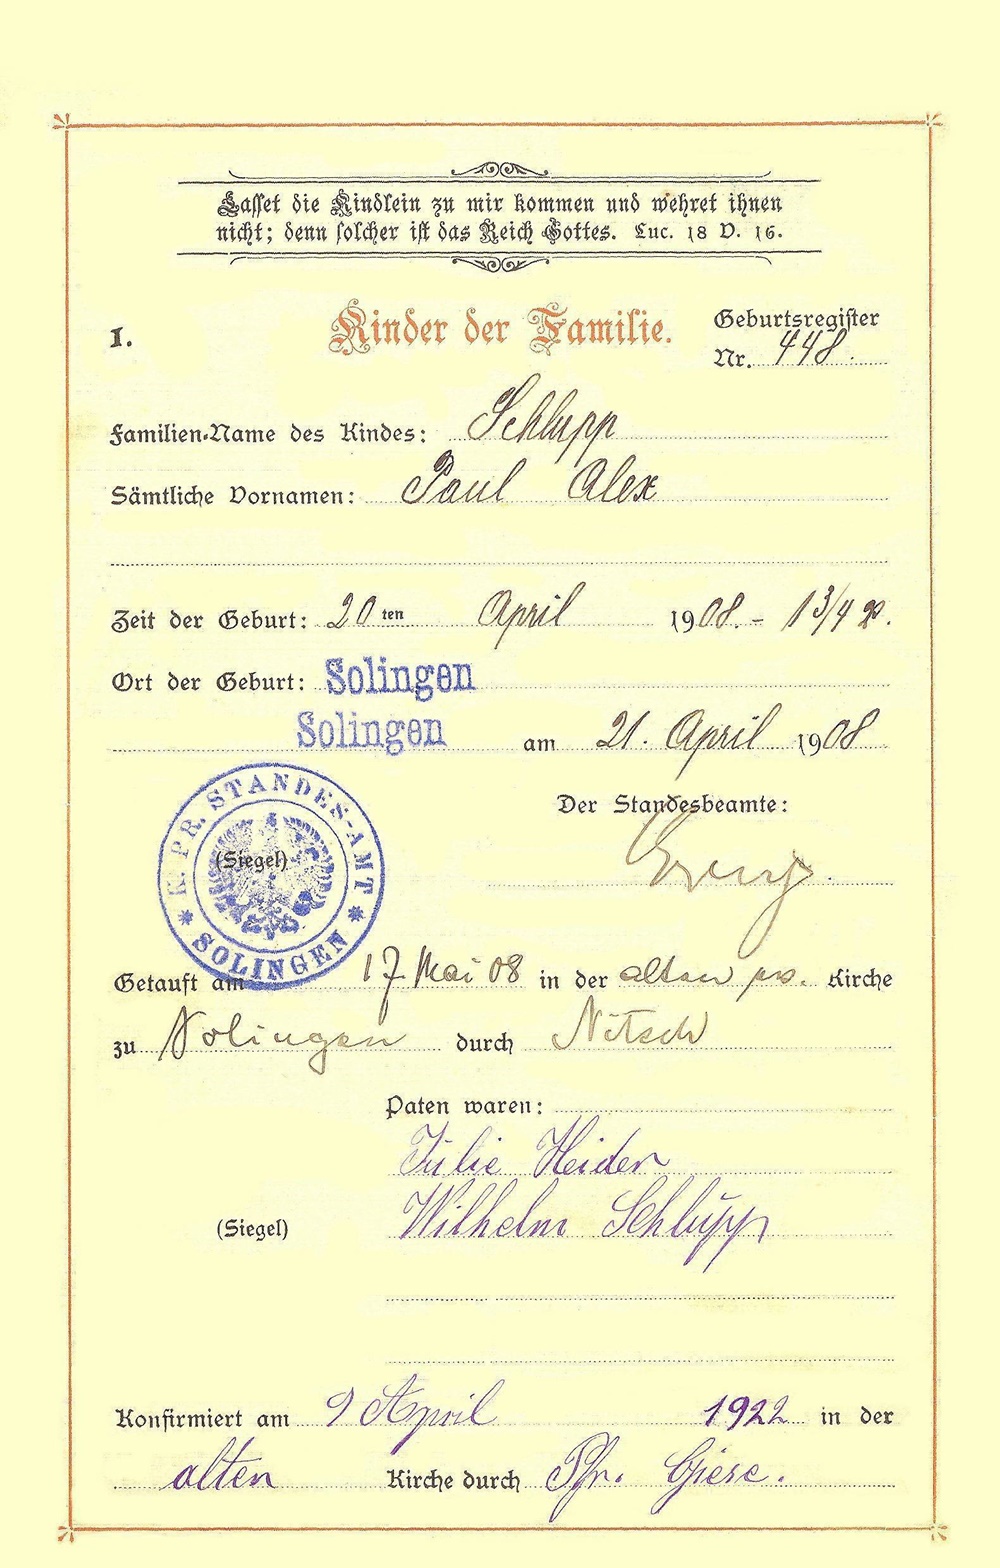 Lasset die Kindlein zu mir kommen und wehret ihnen
nicht; denn solcher ist das Reich Gottes. Luc. 18 V. 16.
I.
Kinder der Familie.
Geburtsregister
Nr. 448.
Familien-Name des Kindes: Schlupp
Sämtliche Vornamen: Paul Alex
Zeit der Geburt: 20ten April 1908. - 1 3/4
Ort der Geburt: Solingen
Solingen am 21. April 1908
Der Standesbeamte:
K. PR. STANDES-AMT
SOLINGEN
(Siegel)
Getauft am 17 Mai 08 in der alten Kirche
zu Solingen durch Nitsch
Paten waren:
Julie Heider
Wilhelm Schlupp
(Siegel)
Konfirmiert am 9 April 1922 in der
alten Kirche durch Pfr. Giese.